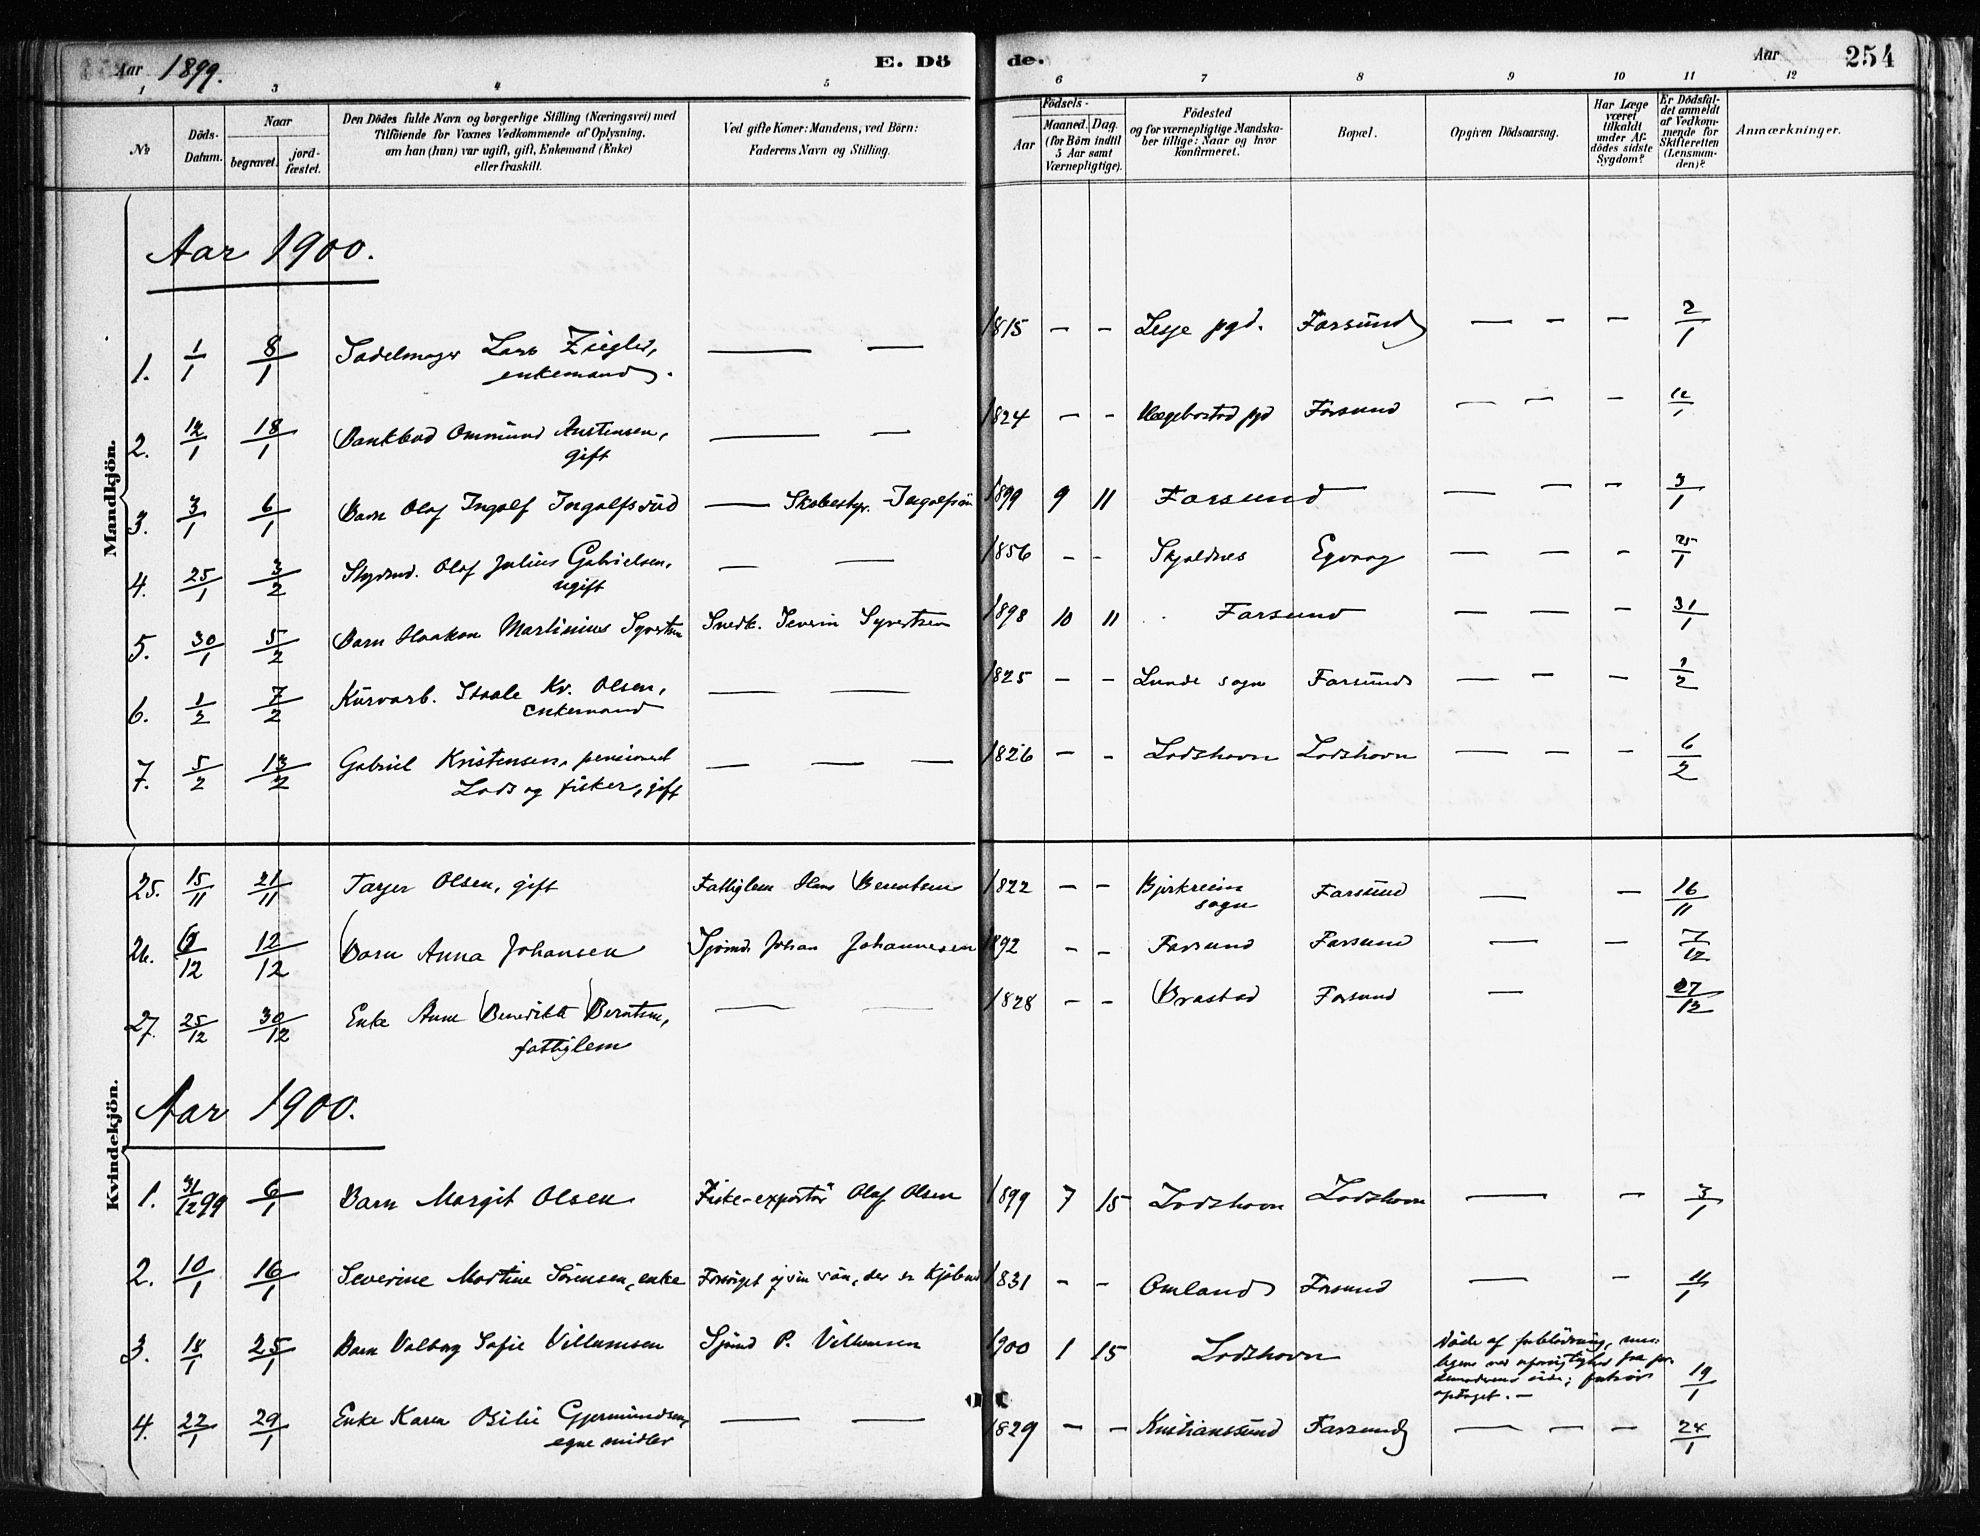 Aar 1899.
E. Dö
de.
Aar
254
1 3 4 5 6 7 8 9 10 11 12
№
Döds-Datum.
Naar
begravet.
jord-fæstet.
Den Dödes fulde Navn og borgerlige Stilling (Næringsvei) med
Tilföiende for Voxnes Vedkommende af Oplysning,
om han (hun) var ugift, gift, Enkemand (Enke)
eller fraskilt.
Ved gifte Koner: Mandens, ved Börn:
Faderens Navn og Stilling.
Födsels-
Aar
Maaned. Dag.
(for Börn indtil
5 Aar samt
Værnepligtige).
Födested
og for værnepligtige Mandska-
ber tillige: Naar og hvor
konfirmeret.
Bopæl.
Opgiven Dödsaarsag.
Har Læge
været
tilkaldt
under Af-
dödes sidste
Sygdom?
Er Dödsfal-
det anmeldt
af Vedkom-
mende for
Skifteretten
(Lensman-
den)?
Anmærkninger.
Mandkjön.
Aar 1900.
1. 1/1 8/1 Sadelmager Lars Ziegler, — — 1815 — — Lesje pgd. Farsund — — — 2/1
enkemand.
2. 12/1 18/1 Bankbud Ommund Austensen, — — 1824 — — Hægebostad pgd Farsund — — — 12/1
gift
3. 3/1 6/1 Barn Olaf Ingolf Ingolfsrud — Skobestyr. Ingolfsön 1899 9 11 Farsund — — — — 3/1
4. 25/1 3/2 Styrmd. Olaf Julius Gabrielsen, — — 1856 — — Skjoldnes Egvaag — — — 25/1
ugift
5. 30/1 5/2 Barn Haakon Martinius Syvertsen Snedk. Severin Syvertsen 1898 10 11 Farsund — — — 31/1
6. 1/2 7/2 Kurvarb. Staale Kv. Olsen, — — 1825 — — Lunde sogn Farsund — — — 1/2
Enkemand
7. 5/2 13/2 Gabriel Kristensen, pensioneret — — — 1826 — — Lodshavn Lodshavn — — — 6/2
Lods og fisker, gift
Kvindekjön.
25. 15/11 21/11 Tarjer Olsen, gift Fattiglem Hans Berentsen 1822 — — Bjerkreim Farsund — — 16/11
sogn
26. 6/12 12/12 Barn Anna Johansen Sjömd. Johan Johannesen 1892 — — Farsund Farsund — — 7/12
27. 25/12 30/12 Enke Anne Benedikte Berntsen, — — 1828 — — Brastad Farsund — 27/12
fattiglem
Aar 1900.
1. 31/12 99 6/1 Barn Margit Olsen Fiske-exportör Olaf Olsen 1899 7 15 Lodshavn Lodshavn — — 3/1
2. 10/1 16/1 Severine Martine Sörensen, enke Forsörget af sin sön, der er Kjöbmd 1831 — — Omland Farsund — — 11/1
3. 18/1 25/1 Barn Valborg Sofie Villumsen Sjömd P. Villumsen 1900 1 15 Lodshavn Döde af forblödning, 19/1
optaget. —
4. 22/1 29/1 Enke Karen Otilie Gjermundsen, — — 1829 — — Kristianssund Farsund — — — 24/1
egne midler